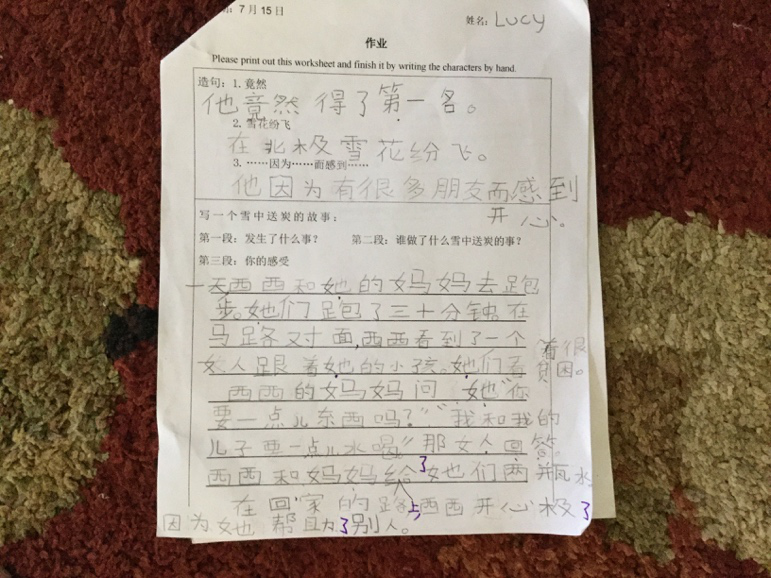 7月15日
姓名: Lucy
作业
Please print out this worksheet and finish it by writing the characters by hand.
造句：1. 竟然
他竟然得了第一名。
2. 雪花纷飞
在北极雪花纷飞。
3. ……因为……而感到……
他因为有很多朋友而感到
开心。
写一个雪中送炭的故事：
第一段：发生了什么事？ 第二段：谁做了什么雪中送炭的事？
第三段：你的感受
一天西西和她的妈妈去跑
步。她们跑了三十分钟。在
马路对面,西西看到了一个
女人跟着她的小孩。她们看
着很
贫困。
西西的妈妈问她“你
要一点儿东西吗？”“我和我的
儿子要一点儿水喝”那女人回答。
西西和妈妈给了她们两瓶水。
在回家的路上西西开心极了
因为她帮助了别人。